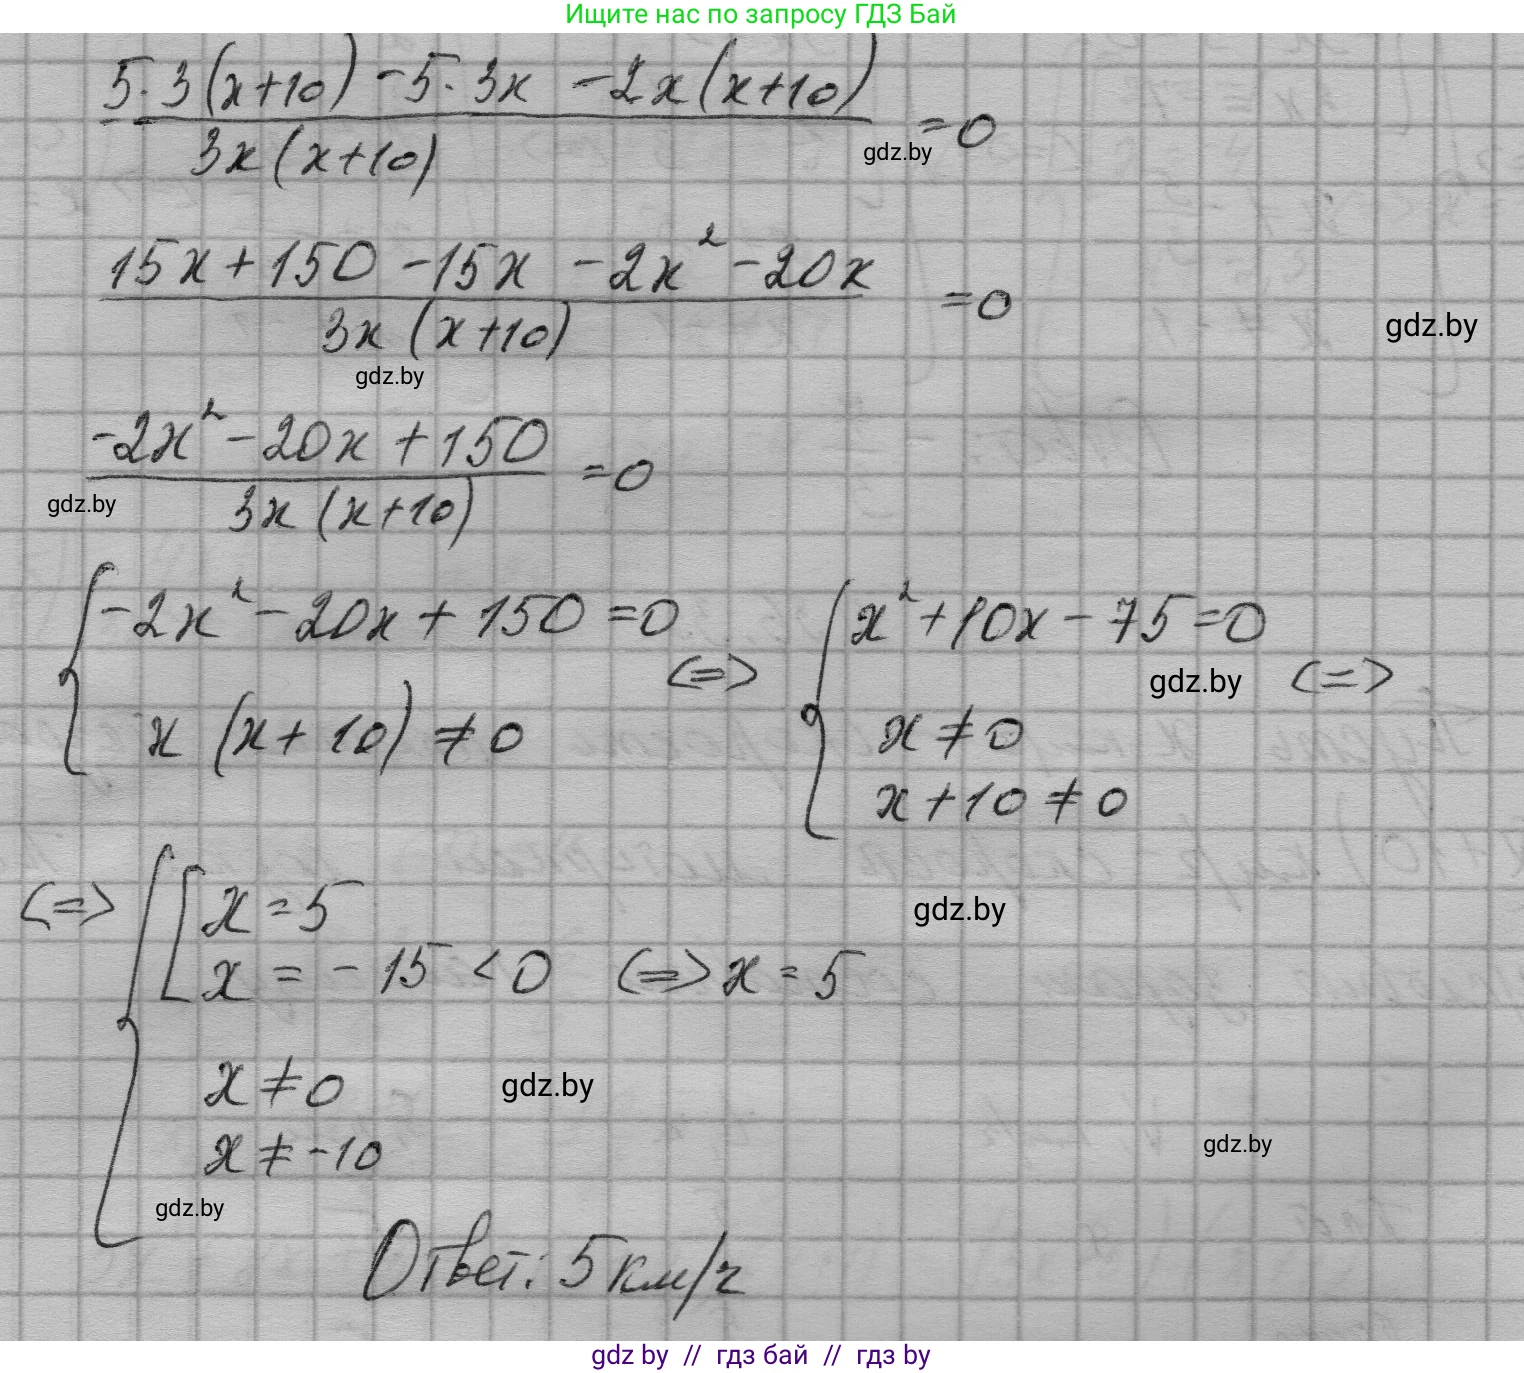 Ищите нас по запросу ГДЗ Бай
5·3(x+10) -5·3x -2x(x+10)
3x(x+10)
=0
gdz.by
15x+150 -15x -2x² -20x
3x (x+10)
=0
gdz.by
gdz.by
-2x² -20x +150
3x (x+10)
=0
gdz.by
{ -2x² -20x + 150 =0
x (x+10) ≠ 0
<=>
{ x² +10x - 75=0
gdz.by
<=>
x ≠ 0
x +10 ≠ 0
<=> { [ x = 5
gdz.by
x = -15 < 0 <=> x = 5
x ≠ 0
gdz.by
x ≠ -10
gdz.by
gdz.by
Ответ: 5 км/ч
gdz by // гдз бай // гдз by